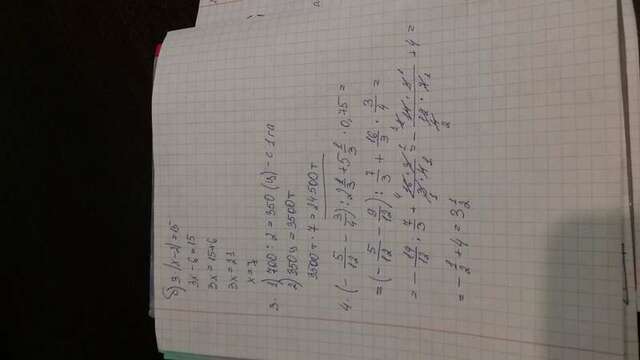 б) 3(x-2)=15
3x-6=15
3x=15+6
3x=21
x=7
3. 1) 700:2=350(ц)-с 1 га
2) 350ц=3500т
3500т·7=24500т
4. (-5/12 - 3/4) : 2 1/3 + 5 1/3 · 0,75 =
= (-5/12 - 9/12) : 7/3 + 16/3 · 3/4 =
= - 14/12 : 7/3 + 16·3/3·4 = - 14·3/12·7 + 4 =
= - 1/2 + 4 = 3 1/2